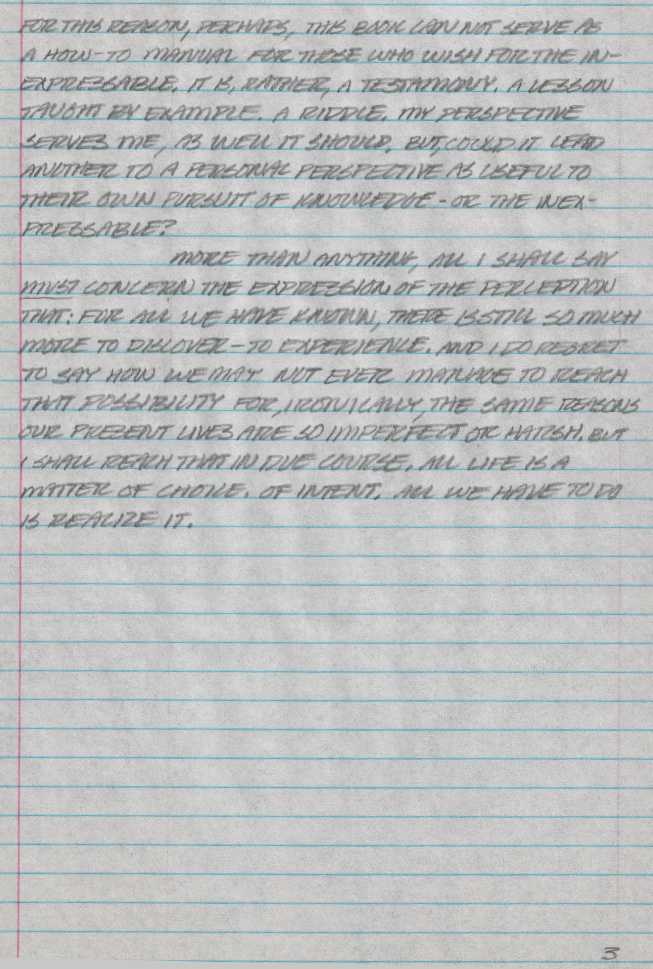 FOR THIS REASON, PERHAPS, THIS BOOK CAN NOT SERVE AS
A HOW-TO MANUAL FOR THOSE WHO WISH FOR THE IN-
EXPRESSABLE. IT IS, RATHER, A TESTAMONY. A LESSON
TAUGHT BY EXAMPLE. A RIDDLE. MY PERSPECTIVE
SERVES ME, AS WELL IT SHOULD. BUT, COULD IT LEAD
ANOTHER TO A PERSONAL PERSPECTIVE AS USEFUL TO
THEIR OWN PURSUIT OF KNOWLEDGE - OR THE INEX-
PRESSABLE?
MORE THAN ANYTHING, ALL I SHALL SAY
MUST CONCERN THE EXPRESSION OF THE PERCEPTION
THAT: FOR ALL WE HAVE KNOWN, THERE IS STILL SO MUCH
MORE TO DISCOVER - TO EXPERIENCE. AND I DO REGRET
TO SAY HOW WE MAY NOT EVER MANAGE TO REACH
THAT POSSIBILITY FOR, IRONICALLY, THE SAME REASONS
OUR PRESENT LIVES ARE SO IMPERFECT OR HARSH. BUT
I SHALL REACH THAT IN DUE COURSE. ALL LIFE IS A
MATTER OF CHOICE. OF INTENT. ALL WE HAVE TO DO
IS REALIZE IT.
3